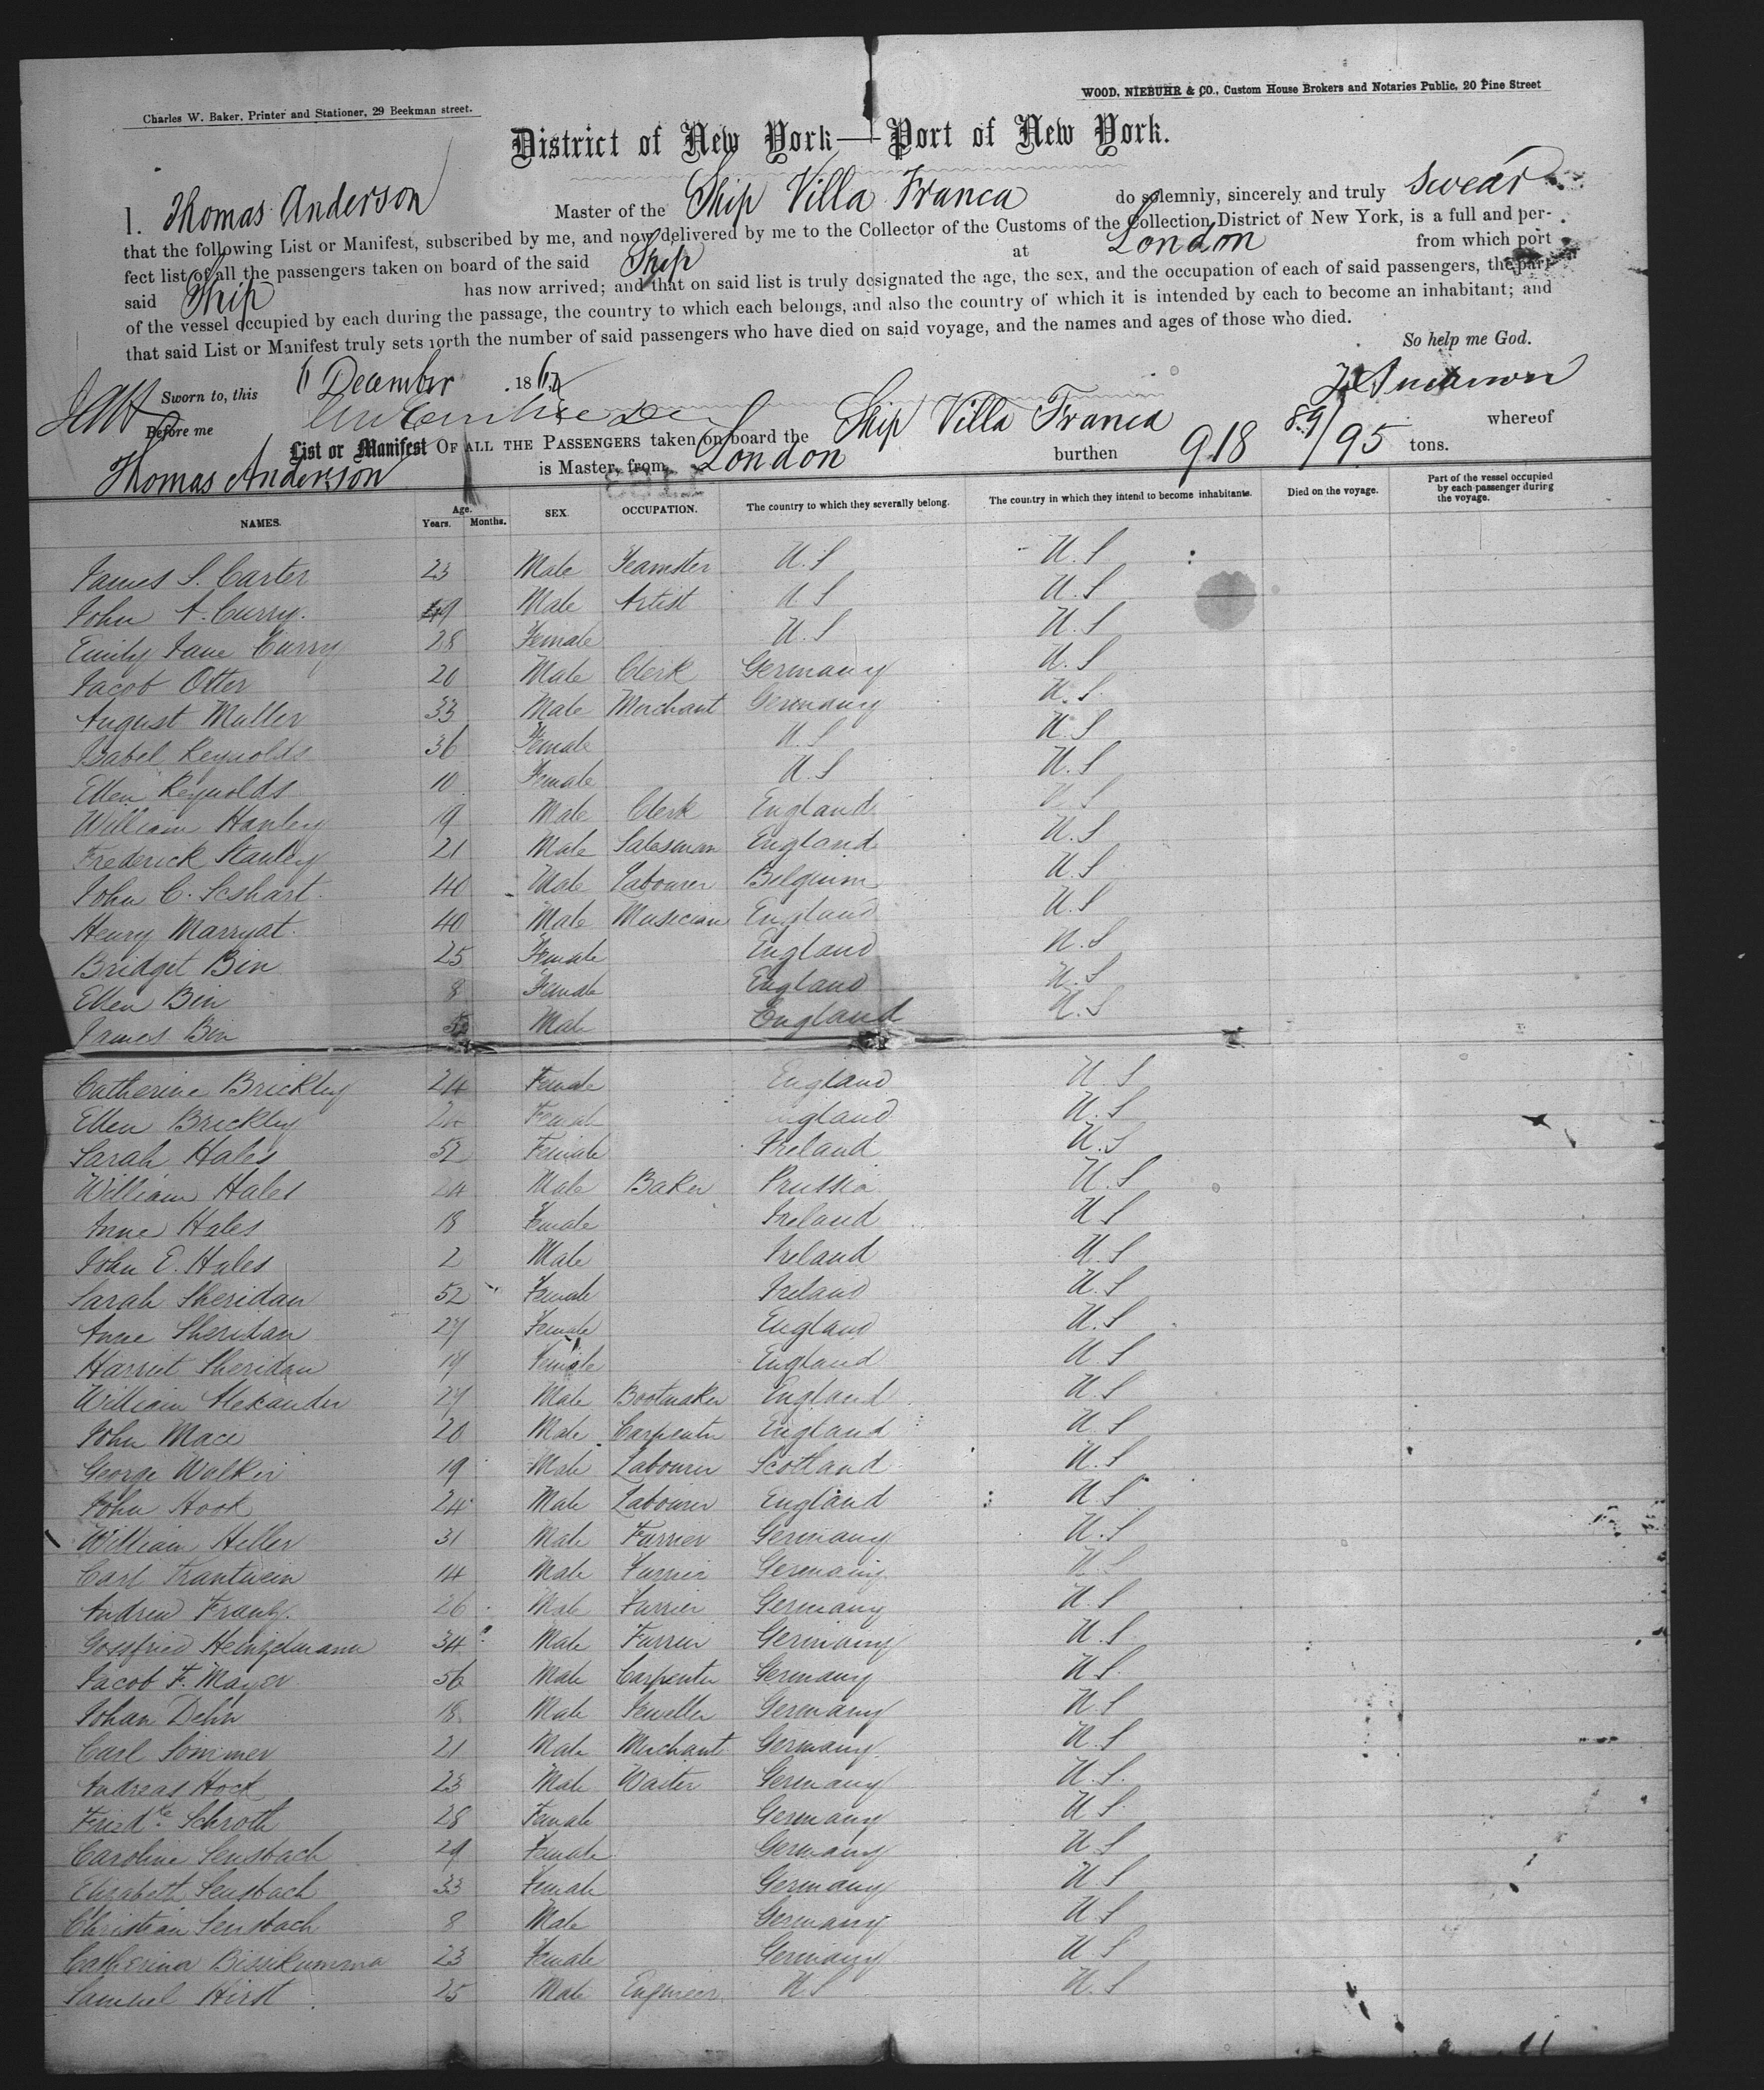 Charles W. Baker, Printer and Stationer, 29 Beekman street.
WOOD, NIEBUHR & CO., Custom House Brokers and Notaries Public, 20 Pine Street
District of New York—Port of New York.
I. Thomas Anderson Master of the Ship Villa Franca do solemnly, sincerely and truly swear
that the following List or Manifest, subscribed by me, and now delivered by me to the Collector of the Customs of the Collection District of New York, is a full and per-
fect list of all the passengers taken on board of the said Ship at London from which port
said Ship has now arrived; and that on said list is truly designated the age, the sex, and the occupation of each of said passengers, the part
of the vessel occupied by each during the passage, the country to which each belongs, and also the country of which it is intended by each to become an inhabitant; and
that said List or Manifest truly sets forth the number of said passengers who have died on said voyage, and the names and ages of those who died.
So help me God.
Sworn to, this 6 December 186
Before me
List or Manifest OF ALL THE PASSENGERS taken on board the Ship Villa Franca whereof
Thomas Anderson is Master, from London burthen 918 89/95 tons.
NAMES. Age. Years. Months. SEX. OCCUPATION. The country to which they severally belong. The country in which they intend to become inhabitants. Died on the voyage. Part of the vessel occupied by each passenger during the voyage.
James S. Carter 23 Male Teamster U.S U.S
John A. Curry. 49 Male Artist U S U.S
Emily Jane Curry 28 Female U.S U.S
Jacob Otter 20 Male Clerk Germany U.S
August Muller 33 Male Merchant Germany U.S
Isabel Reynolds 36 Female U.S U.S
Ellen Reynolds 10 Female U.S U.S
William Hanley 19 Male Clerk England U S
Frederick Stanley 21 Male Salesman England U.S
John C. 40 Male Labourer Belgium U.S
Henry Marryat. 40 Male Musician England U.S
Bridget Bin 25 Female England U.S
Ellen Bin 8 Female England U.S
James Bin Male England U.S
Catherine Brickley 24 Female England U.S
Ellen Brickley Female England U.S
Sarah Hales 52 Female Ireland U.S
William Hales 24 Male Baker Prussia U.S
Anne Hales 18 Female Ireland U.S
John E. Hales 2 Male Ireland U.S
Sarah Sheridan 52 Female Ireland U.S
Anne Sheridan 27 Female England U.S
Harriet Sheridan 17 Female England U.S
William Alexander 27 Male Bootmaker England U.S
John Mace 20 Male Carpenter England U.S
George Walker 19 Male Labourer Scotland U.S
John Hook 24 Male Labourer England U.S
William Heller 31 Male Furrier Germany U.S
Carl Trantwein 14 Male Furrier Germany U.S
Andrew Frantz. 26 Male Furrier Germany U.S
Gossfried Heinzelmann 34 Male Furrier Germany U.S
Jacob F. Mayer 56 Male Carpenter Germany U.S
Johan Dehn 18 Male Jeweller Germany U.S
Carl Sommer 21 Male Merchant Germany U.S
Andreas Hock 23 Male Waiter Germany U.S.
Fried.ke Schroth 28 Female Germany U S
Caroline Sensbach 29 Female Germany U.S
Elizabeth Sensbach 33 Female Germany U.S
Christian Sensbach 8 Male Germany U.S
Catherina 23 Female Germany U.S
Samuel Hirst 25 Male Engineer U S U.S